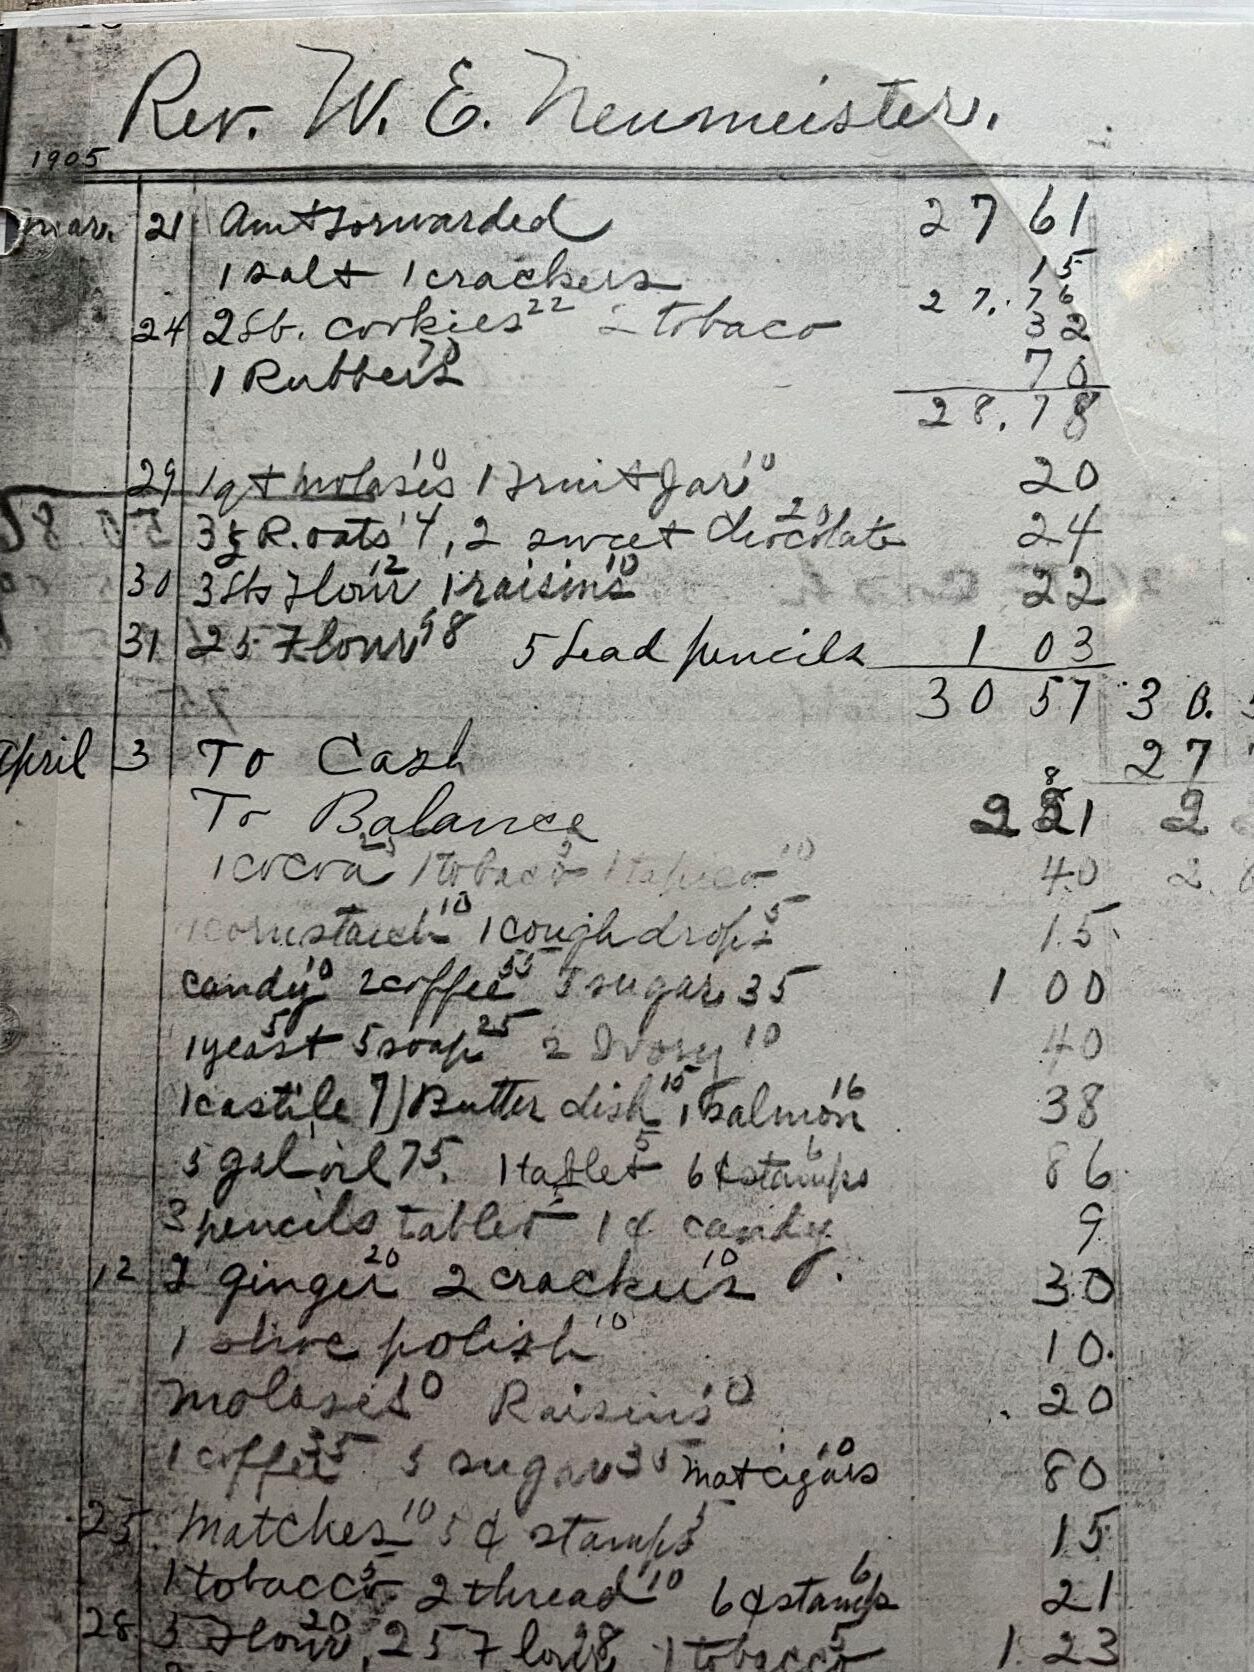 Rev. W. E. Neumeister.
1905
Mar. 21 Amt forwarded 27 61
1 salt 1 crackers 15
27.76
24 2 lb. cookies 22 2 tobaco 32
1 Rubbers 70 70
28.78
29 1 qt molases 10 1 Fruit Jar 10 20
3 R. oats 14, 2 sweet chocolate 24
30 3 lbs Flour 12 1 raisins 10 22
31 25 Flour 98 5 Lead pencils 1 03
30 57 30.
April 3 To Cash 27
To Balance 2 81 2
1 cocoa 25 1 tobaco 1 tapioca 10 40 2.
1 cornstarch 10 1 cough drops 5 15
candy 10 2 coffee 55 5 sugar 35 1 00
1 yeast 5 5 soap 25 2 Ivory 10 40
1 castile 7 1 Butter dish 15 1 salmon 16 38
5 gal oil 75. 1 tablet 5 6¢ stamps 6 86
3 pencils tablet 1¢ candy 9
12 2 ginger 20 2 crackers 10 30
1 shoe polish 10 10.
Molases 10 Raisins 10 20
1 coffee 35 5 sugar 35 cigars 10 80
25 Matches 10 5¢ stamps 5 15
1 tobacco 5 2 thread 10 6¢ stamps 6 21
28 5 Flour 20, 25 Flour 98 1 tobacco 5 1.23